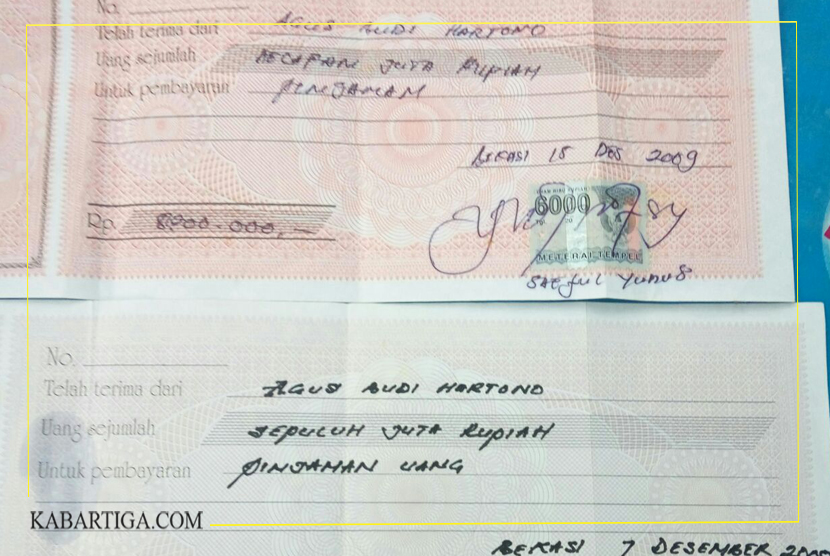 No.
Telah terima dari AGUS BUDI HARTONO
Uang sejumlah DELAPAN JUTA RUPIAH
Untuk pembayaran PINJAMAN
BEKASI 15 DES 2009
Rp. 8000.000,-
6000
METERAI TEMPEL
SAEFUL YUNUS
No.
Telah terima dari AGUS BUDI HARTONO
Uang sejumlah SEPULUH JUTA RUPIAH
Untuk pembayaran PINJAMAN UANG
KABARTIGA.COM
BEKASI 7 DESEMBER